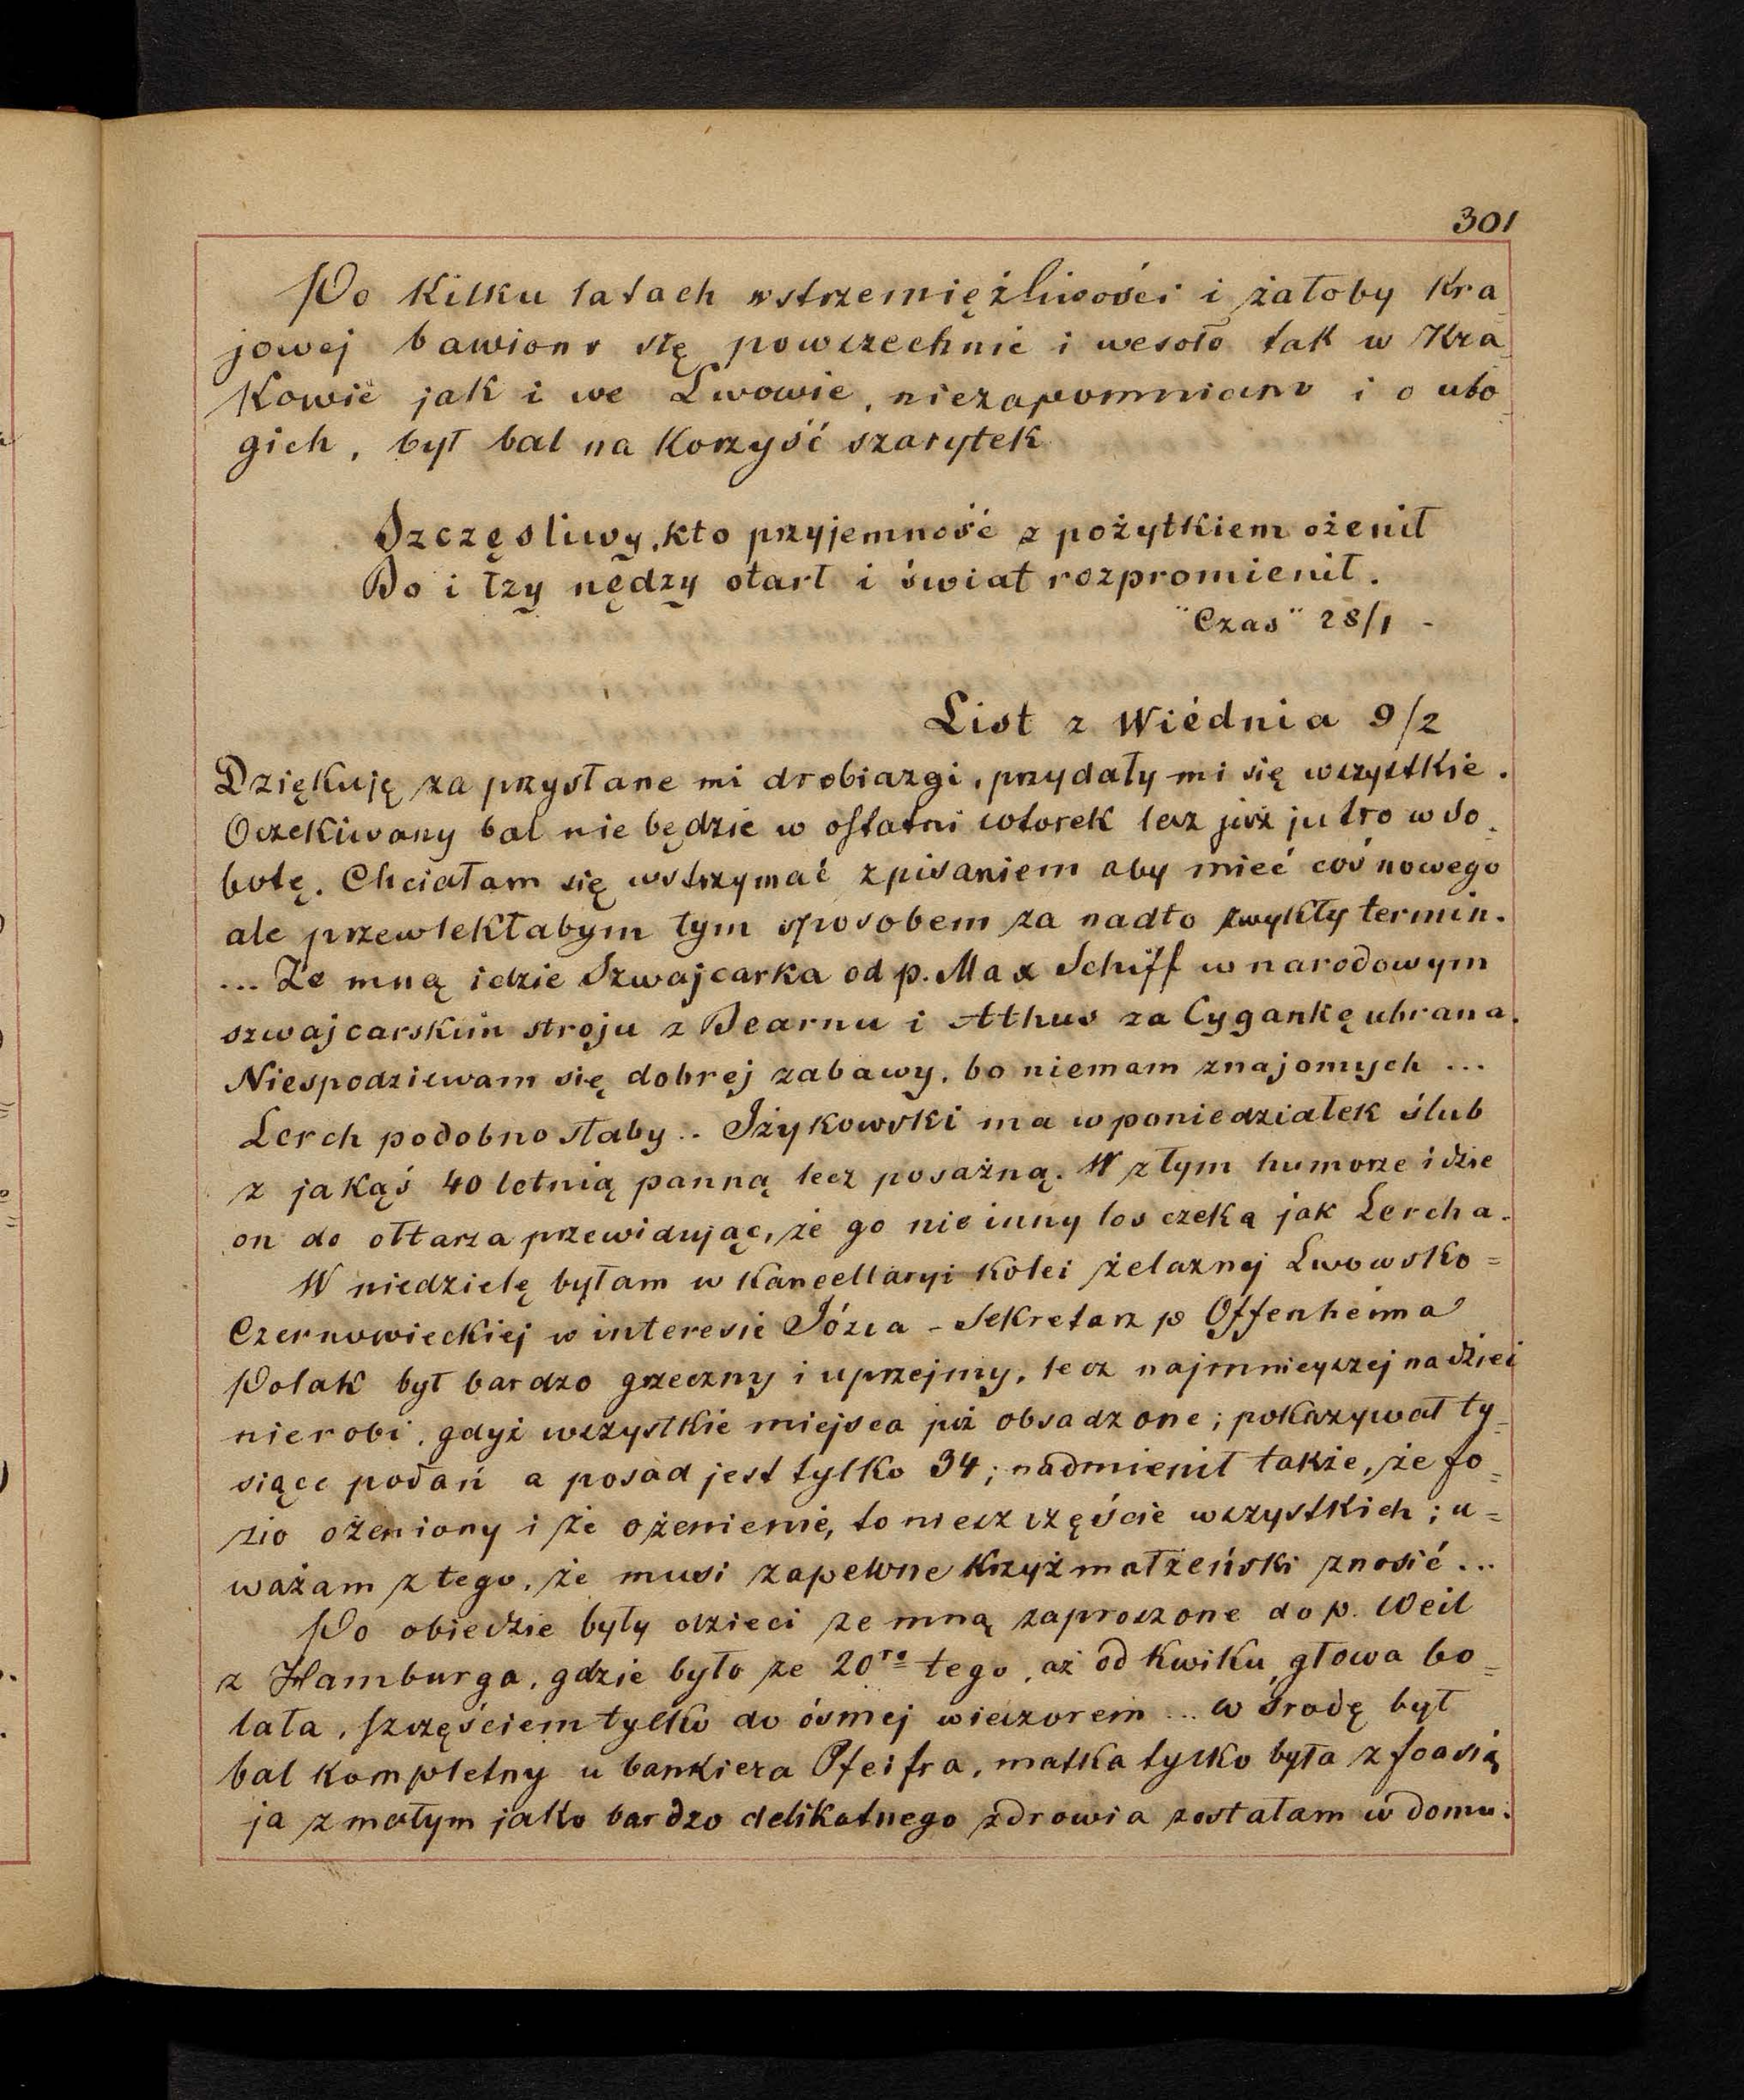 301
Po kilku latach wstrzemięźliwości i żałoby kra_
jowej bawiono się powszechnie i wesoło tak w Kra_
kowie jak i we Lwowie, niezapomniano i o ubo_
gich, był bal na korzyść szarytek
Szczęsliwy, kto przyjemność z pożytkiem ożenił
Bo i łzy nędzy otarł i świat rozpromienił.
"Czas" 28/1 -
List z Wiédnia 9/2
Dziękuję za przysłane mi drobiazgi, przydały mi się wszystkie.
Oczekiwany bal nie będzie w ostatni wtorek lecz już jutro w so_
botę. Chciałam się wstrzymać z pisaniem aby mieć coś nowego
ale przewlekłabym tym sposobem za nadto zwykły termin.
... Ze mną idzie Szwajcarka od p. Max Schiff w narodowym
szwajcarskim stroju z Bearnu i Athus za Cygankę ubrana.
Niespodziewam się dobrej zabawy, bo niemam znajomych ...
Lerch podobno słaby .. Iżykowski ma w poniedziałek ślub
z jakąś 40 letnią panną lecz posażną. W złym humorze idzie
on do ołtarza przewidując, że go nie inny los czeka jak Lercha.
W niedzielę byłam w Kancellaryi kolei żelaznej Lwowsko=
Czernowieckiej w interesie Józia - Sekretarz p Offenheima
Polak był bardzo grzeczny i uprzejmy, lecz najmnieyszej nadziei
nierobi, gdyż wszystkie miejsca już obsadzone; pokazywał ty_
siące podań a posad jest tylko 34; nadmienił także, że Jó=
zio ożeniony i że ożenienie, to nieszczęście wszystkich; u=
ważam z tego, że musi zapewne krzyż małżeński znosić ...
Po obiedzie były dzieci ze mną zaproszone do p. Weil
z Hamburga, gdzie było ze 20ro tego, aż od kwiku głowa bo=
lała, szczęściem tylko do ósmej wieczorem ... w środę był
bal kompletny u bankiera Pfeifra, matka tylko była z Joasią
ja z małym jako bardzo delikatnego zdrowia zostałam w domu.